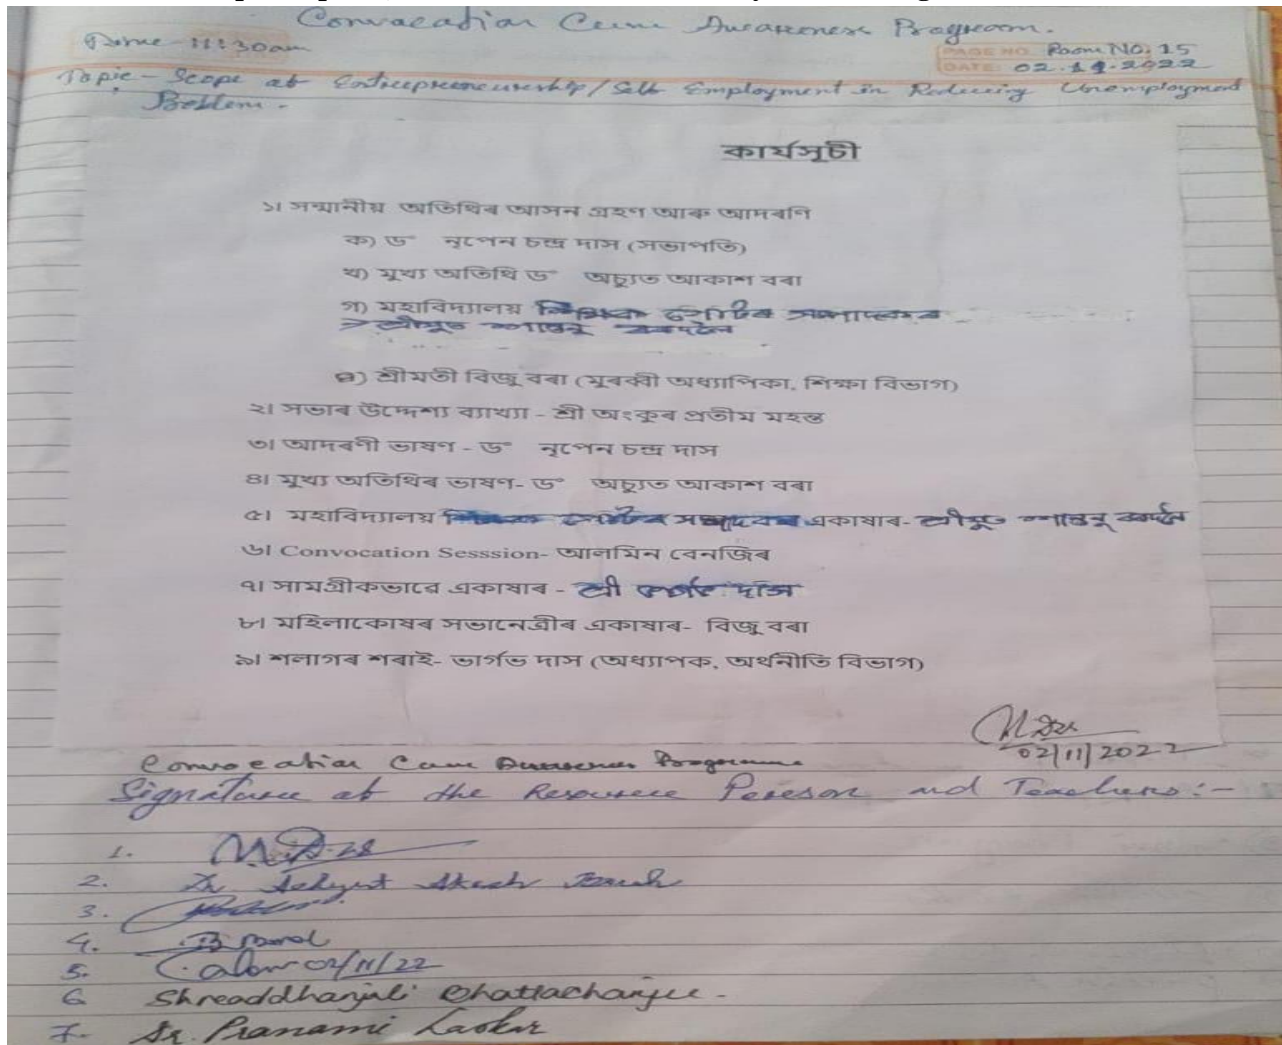 Convocation Cum Awareness Program.
Time - 11:30am
PAGE NO. Room NO: 15
DATE: 02.11.2022
Topic - Scope of Entrepreneurship/Self Employment in Reducing Unemployment
Problem.
কাৰ্যসূচী
১। সন্মানীয় অতিথিৰ আসন গ্ৰহণ আৰু আদৰণি
ক) ড° নৃপেন চন্দ্ৰ দাস (সভাপতি)
খ) মুখ্য অতিথি ড° অচ্যুত আকাশ বৰা
গ) মহাবিদ্যালয় শিক্ষক গোটৰ সম্পাদকৰ
শ্ৰীযুত শান্তনু বৰদলৈ
ঘ) শ্ৰীমতী বিজু বৰা (মুৰব্বী অধ্যাপিকা, শিক্ষা বিভাগ)
২। সভাৰ উদ্দেশ্য ব্যাখ্যা - শ্ৰী অংকুৰ প্ৰতীম মহন্ত
৩। আদৰণী ভাষণ - ড° নৃপেন চন্দ্ৰ দাস
৪। মুখ্য অতিথিৰ ভাষণ- ড° অচ্যুত আকাশ বৰা
৫। মহাবিদ্যালয় শিক্ষক গোটৰ সম্পাদকৰ একাষাৰ- শ্ৰীযুত শান্তনু বৰদলৈ
৬। Convocation Sesssion- আলমিন বেনজিৰ
৭। সামগ্ৰীকভাৱে একাষাৰ - শ্ৰী ভাৰ্গভ দাস
৮। মহিলাকোষৰ সভানেত্ৰীৰ একাষাৰ- বিজু বৰা
৯। শলাগৰ শৰাই- ভাৰ্গভ দাস (অধ্যাপক, অৰ্থনীতি বিভাগ)
02/11/2022
Convocation Cum Awareness Programme
Signature of the Resource Person and Teachers:-
1.
2. Dr Achyut Akash Borah
3.
4. B Borah
5. 02/11/22
6 Shreaddhanjali Bhattacharjee.
7. Dr. Pranami Laskar